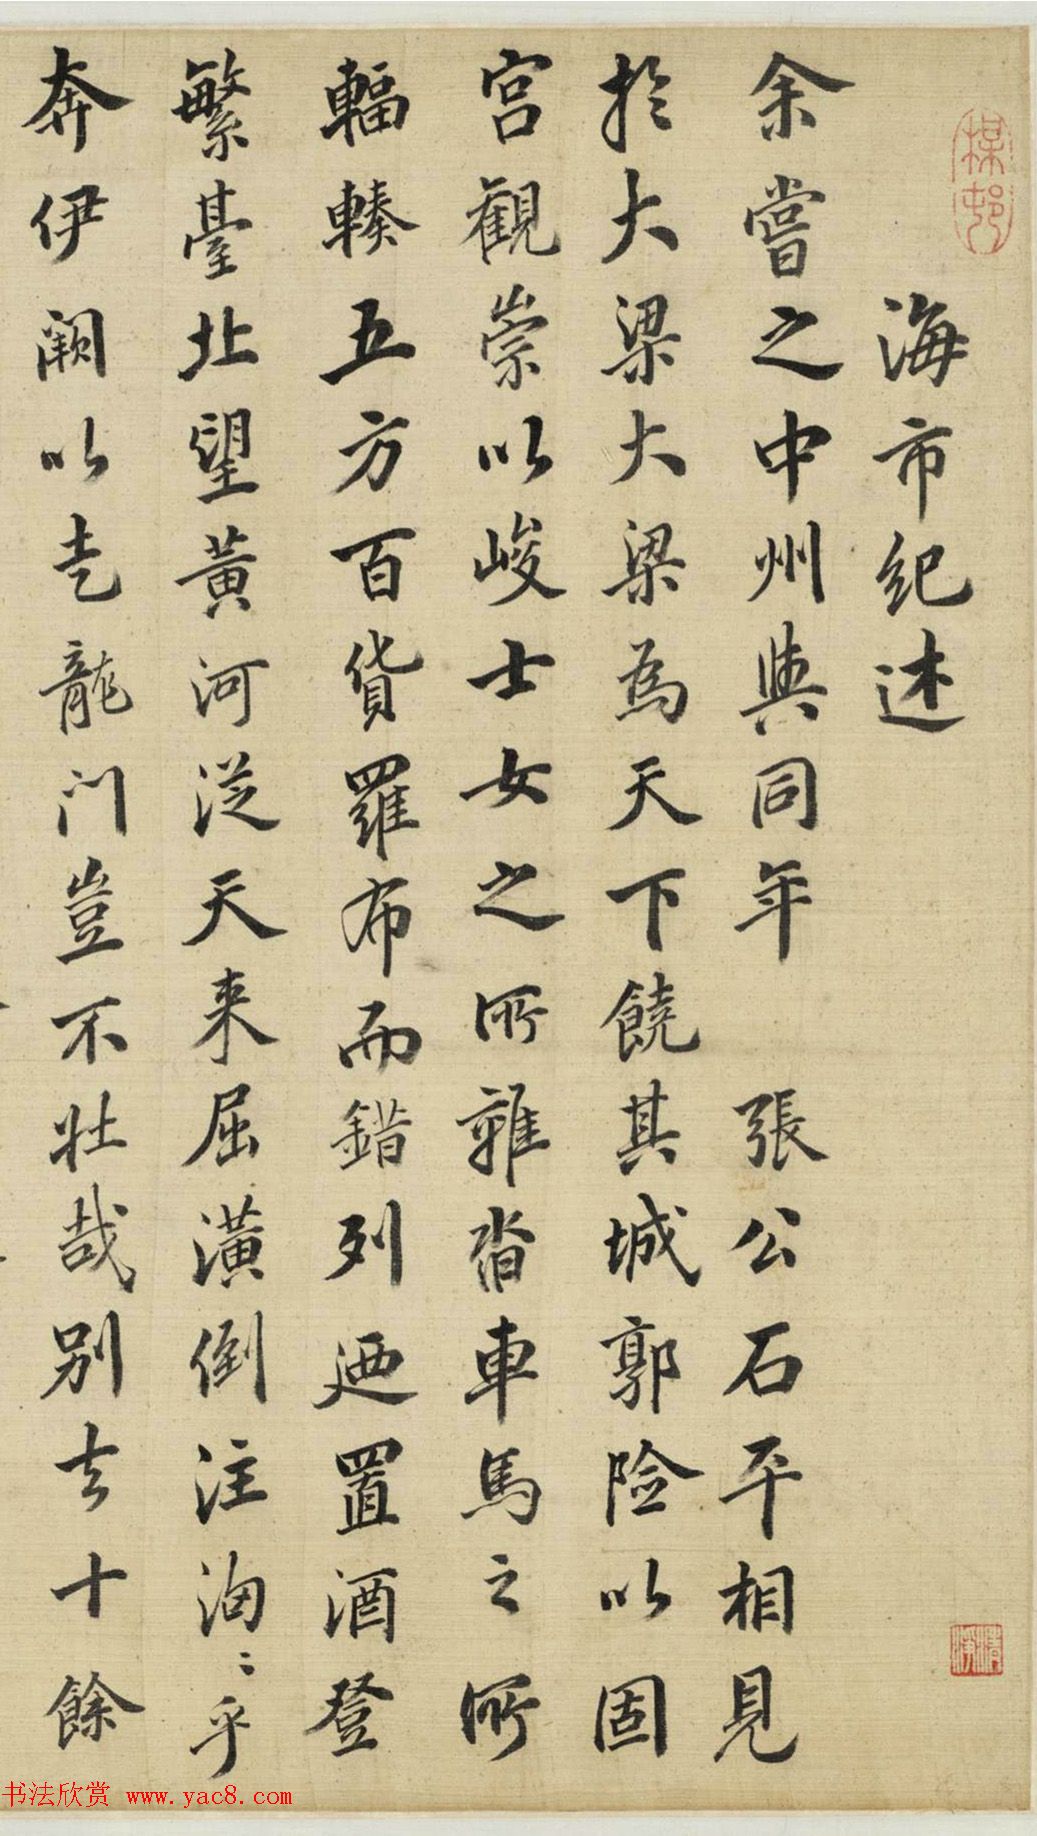 海市紀述
余嘗之中州與同年張公石平相見
於大梁大梁為天下饒其城郭險以固
宮觀崇以峻士女之所雜沓車馬之所
輻輳五方百貨羅布而錯列迺置酒登
繁臺北望黃河從天來屈潢倒注洶〻乎
奔伊闕以走龍門豈不壯哉別去十餘
书法欣赏 www.yac8.com